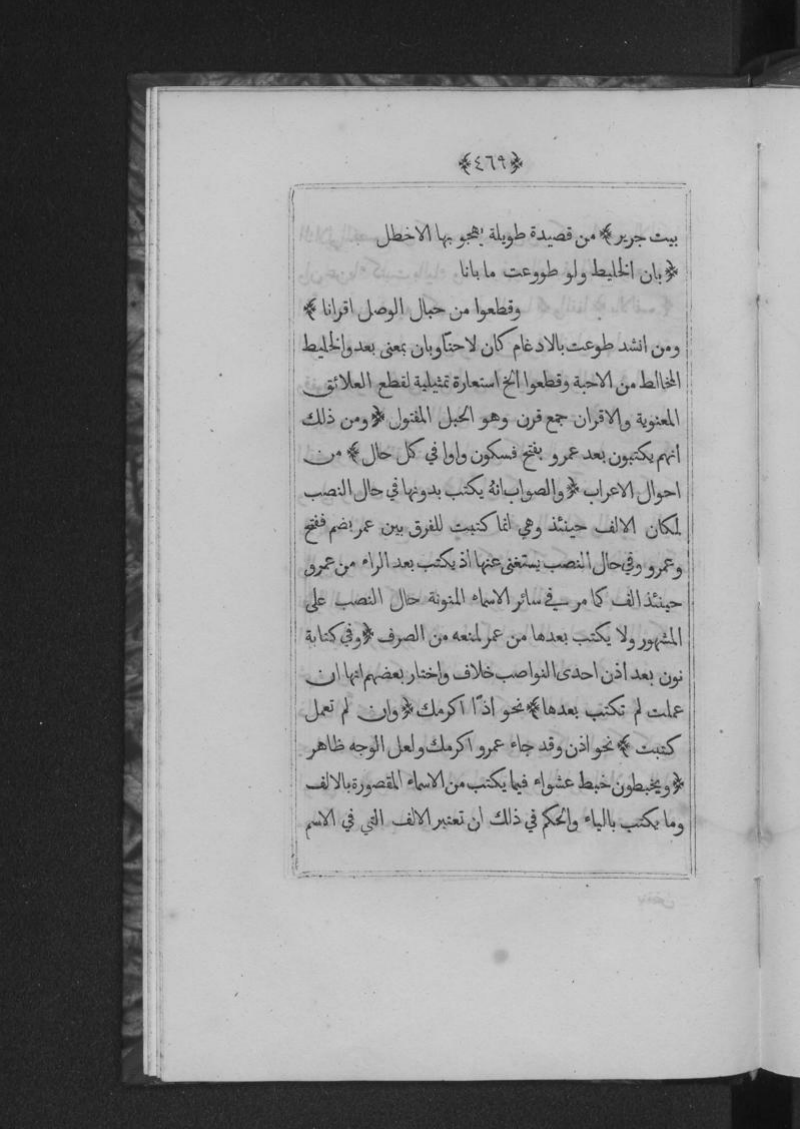 ﴿٤٦٩﴾
بيت جرير﴾ من قصيدة طويلة يهجو بها الاخطل
﴿بان الخليط ولو طووعت ما بانا
وقطعوا من حبال الوصل اقرانا﴾
ومن انشد طوعت بالادغام كان لاحنًا وبان بمعنى بعد والخليط
المخالط من الاحبة وقطعوا الخ استعارة تمثيلية لقطع العلائق
المعنوية والاقران جمع قرن وهو الحبل المفتول ﴿ومن ذلك
انهم يكتبون بعد عمرو بفتح فسكون واوا في كل حال﴾ من
احوال الاعراب ﴿والصواب انه يكتب بدونها في حال النصب
لمكان الالف حينئذ وهي انما كتبت للفرق بين عمر بضم ففتح
وعمرو وفي حال النصب يستغنى عنها اذ يكتب بعد الراء من عمرو
حينئذ الف كما مر في سائر الاسماء المنونة حال النصب على
المشهور ولا يكتب بعدها من عمر لمنعه من الصرف ﴿وفي كتابة
نون بعد اذن احدى النواصب خلاف واختار بعضهم انها ان
عملت لم تكتب بعدها﴾ نحو اذًا اكرمك ﴿وان لم تعمل
كتبت﴾ نحو اذن وقد جاء عمرو اكرمك ولعل الوجه ظاهر
﴿ويخبطون خبط عشواء فيما يكتب من الاسماء المقصورة بالالف
وما يكتب بالياء والحكم في ذلك ان تعتبر الالف التي في الاسم